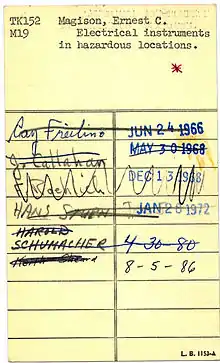 TK152 Magison, Ernest C.
M19 Electrical instruments
in hazardous locations.
*
Ray Freilino JUN 24 1966
J. Callahan MAY 30 1968
DEC 13 1968
HANS JAN 28 1972
HAROLD
SCHUMACHER 4-30-80
Keith 8-5-86
L. B. 1153-A